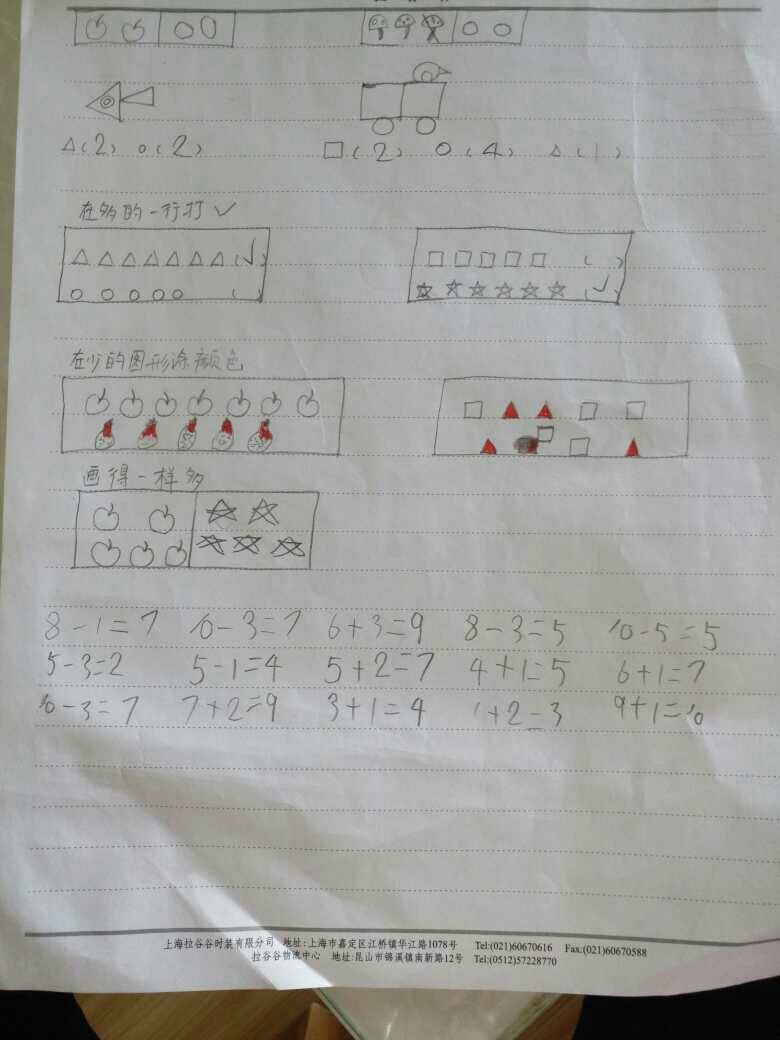 △(2) ○(2) □(2) ○(4) △(1)
在多的一行打✓
△△△△△△△(✓) □□□□□( )
○○○○○( ) ☆☆☆☆☆☆(✓)
在少的图形涂颜色
画得一样多
8-1=7 10-3=7 6+3=9 8-3=5 10-5=5
5-3=2 5-1=4 5+2=7 4+1=5 6+1=7
10-3=7 7+2=9 3+1=4 1+2=3 9+1=10
上海拉谷谷时装有限分司 地址:上海市嘉定区江桥镇华江路1078号 Tel:(021)60670616 Fax:(021)60670588
拉谷谷物流中心 地址:昆山市锦溪镇南新路12号 Tel:(0512)57228770